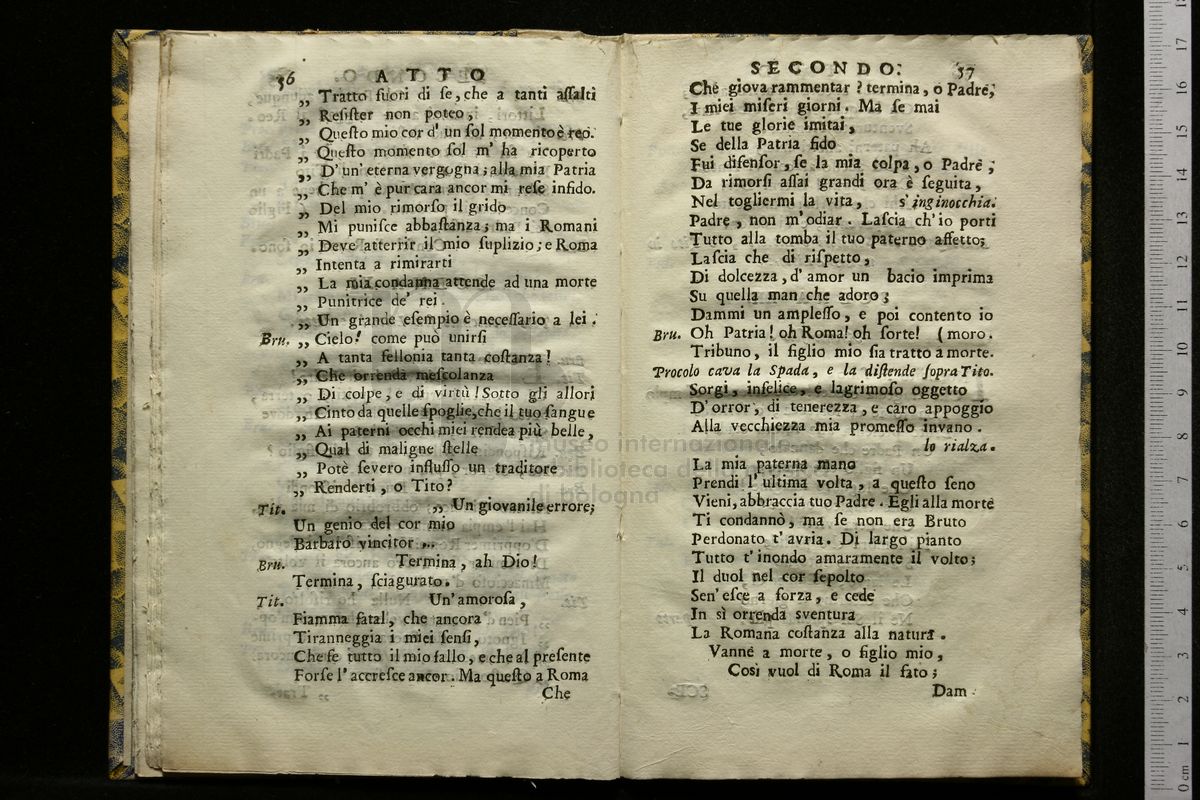 36 ATTO
„ Tratto fuori di se, che a tanti aſſalti
„ Reſiſter non poteo,
„ Queſto mio cor d' un ſol momento è reo.
„ Queſto momento ſol m' ha ricoperto
„ D' un' eterna vergogna; alla mia Patria
„ Che m' è pur cara ancor mi reſe infido.
„ Del mio rimorſo il grido
„ Mi puniſce abbaſtanza; ma i Romani
„ Deve atterrir il mio ſuplizio; e Roma
„ Intenta a rimirarti
„ La mia condanna attende ad una morte
„ Punitrice de' rei.
„ Un grande eſempio è neceſſario a lei.
Bru. „ Cielo! come può unirſi
„ A tanta fellonia tanta coſtanza!
„ Che orrenda meſcolanza
„ Di colpe, e di virtù! Sotto gli allori
„ Cinto da quelle ſpoglie, che il tuo ſangue
„ Ai paterni occhi miei rendea più belle,
„ Qual di maligne ſtelle
„ Potè ſevero influſſo un traditore
„ Renderti, o Tito?
Tit. „ Un giovanile errore;
Un genio del cor mio
Barbaro vincitor ...
Bru. Termina, ah Dio!
Termina, ſciagurato.
Tit. Un' amoroſa,
Fiamma fatal, che ancora
Tiranneggia i miei ſenſi,
Che fe tutto il mio fallo, e che al preſente
Forſe l' accreſce ancor. Ma queſto a Roma
Che
SECONDO. 37
Che giova rammentar? termina, o Padre,
I miei miſeri giorni. Ma ſe mai
Le tue glorie imitai,
Se della Patria fido
Fui difenſor, ſe la mia colpa, o Padre,
Da rimorſi aſſai grandi ora è ſeguita,
Nel togliermi la vita, s' inginocchia.
Padre, non m' odiar. Laſcia ch' io porti
Tutto alla tomba il tuo paterno affetto;
Laſcia che di riſpetto,
Di dolcezza, d' amor un bacio imprima
Su quella man che adoro;
Dammi un ampleſſo, e poi contento io
Bru. Oh Patria! oh Roma! oh ſorte! (moro.
Tribuno, il figlio mio ſia tratto a morte.
Procolo cava la Spada, e la diſtende ſopra Tito.
Sorgi, infelice, e lagrimoſo oggetto
D' orror, di tenerezza, e caro appoggio
Alla vecchiezza mia promeſſo invano.
lo rialza.
La mia paterna mano
Prendi l' ultima volta, a queſto ſeno
Vieni, abbraccia tuo Padre. Egli alla morte
Ti condannò, ma ſe non era Bruto
Perdonato t' avria. Di largo pianto
Tutto t' inondo amaramente il volto;
Il duol nel cor ſepolto
Sen' eſce a forza, e cede
In sì orrenda sventura
La Romana coſtanza alla natura.
Vanne a morte, o figlio mio,
Così vuol di Roma il fato;
Dam
museo internazionale
biblioteca della
di bologna
0 cm 1 2 3 4 5 6 7 8 9 10 11 12 13 14 15 16 17